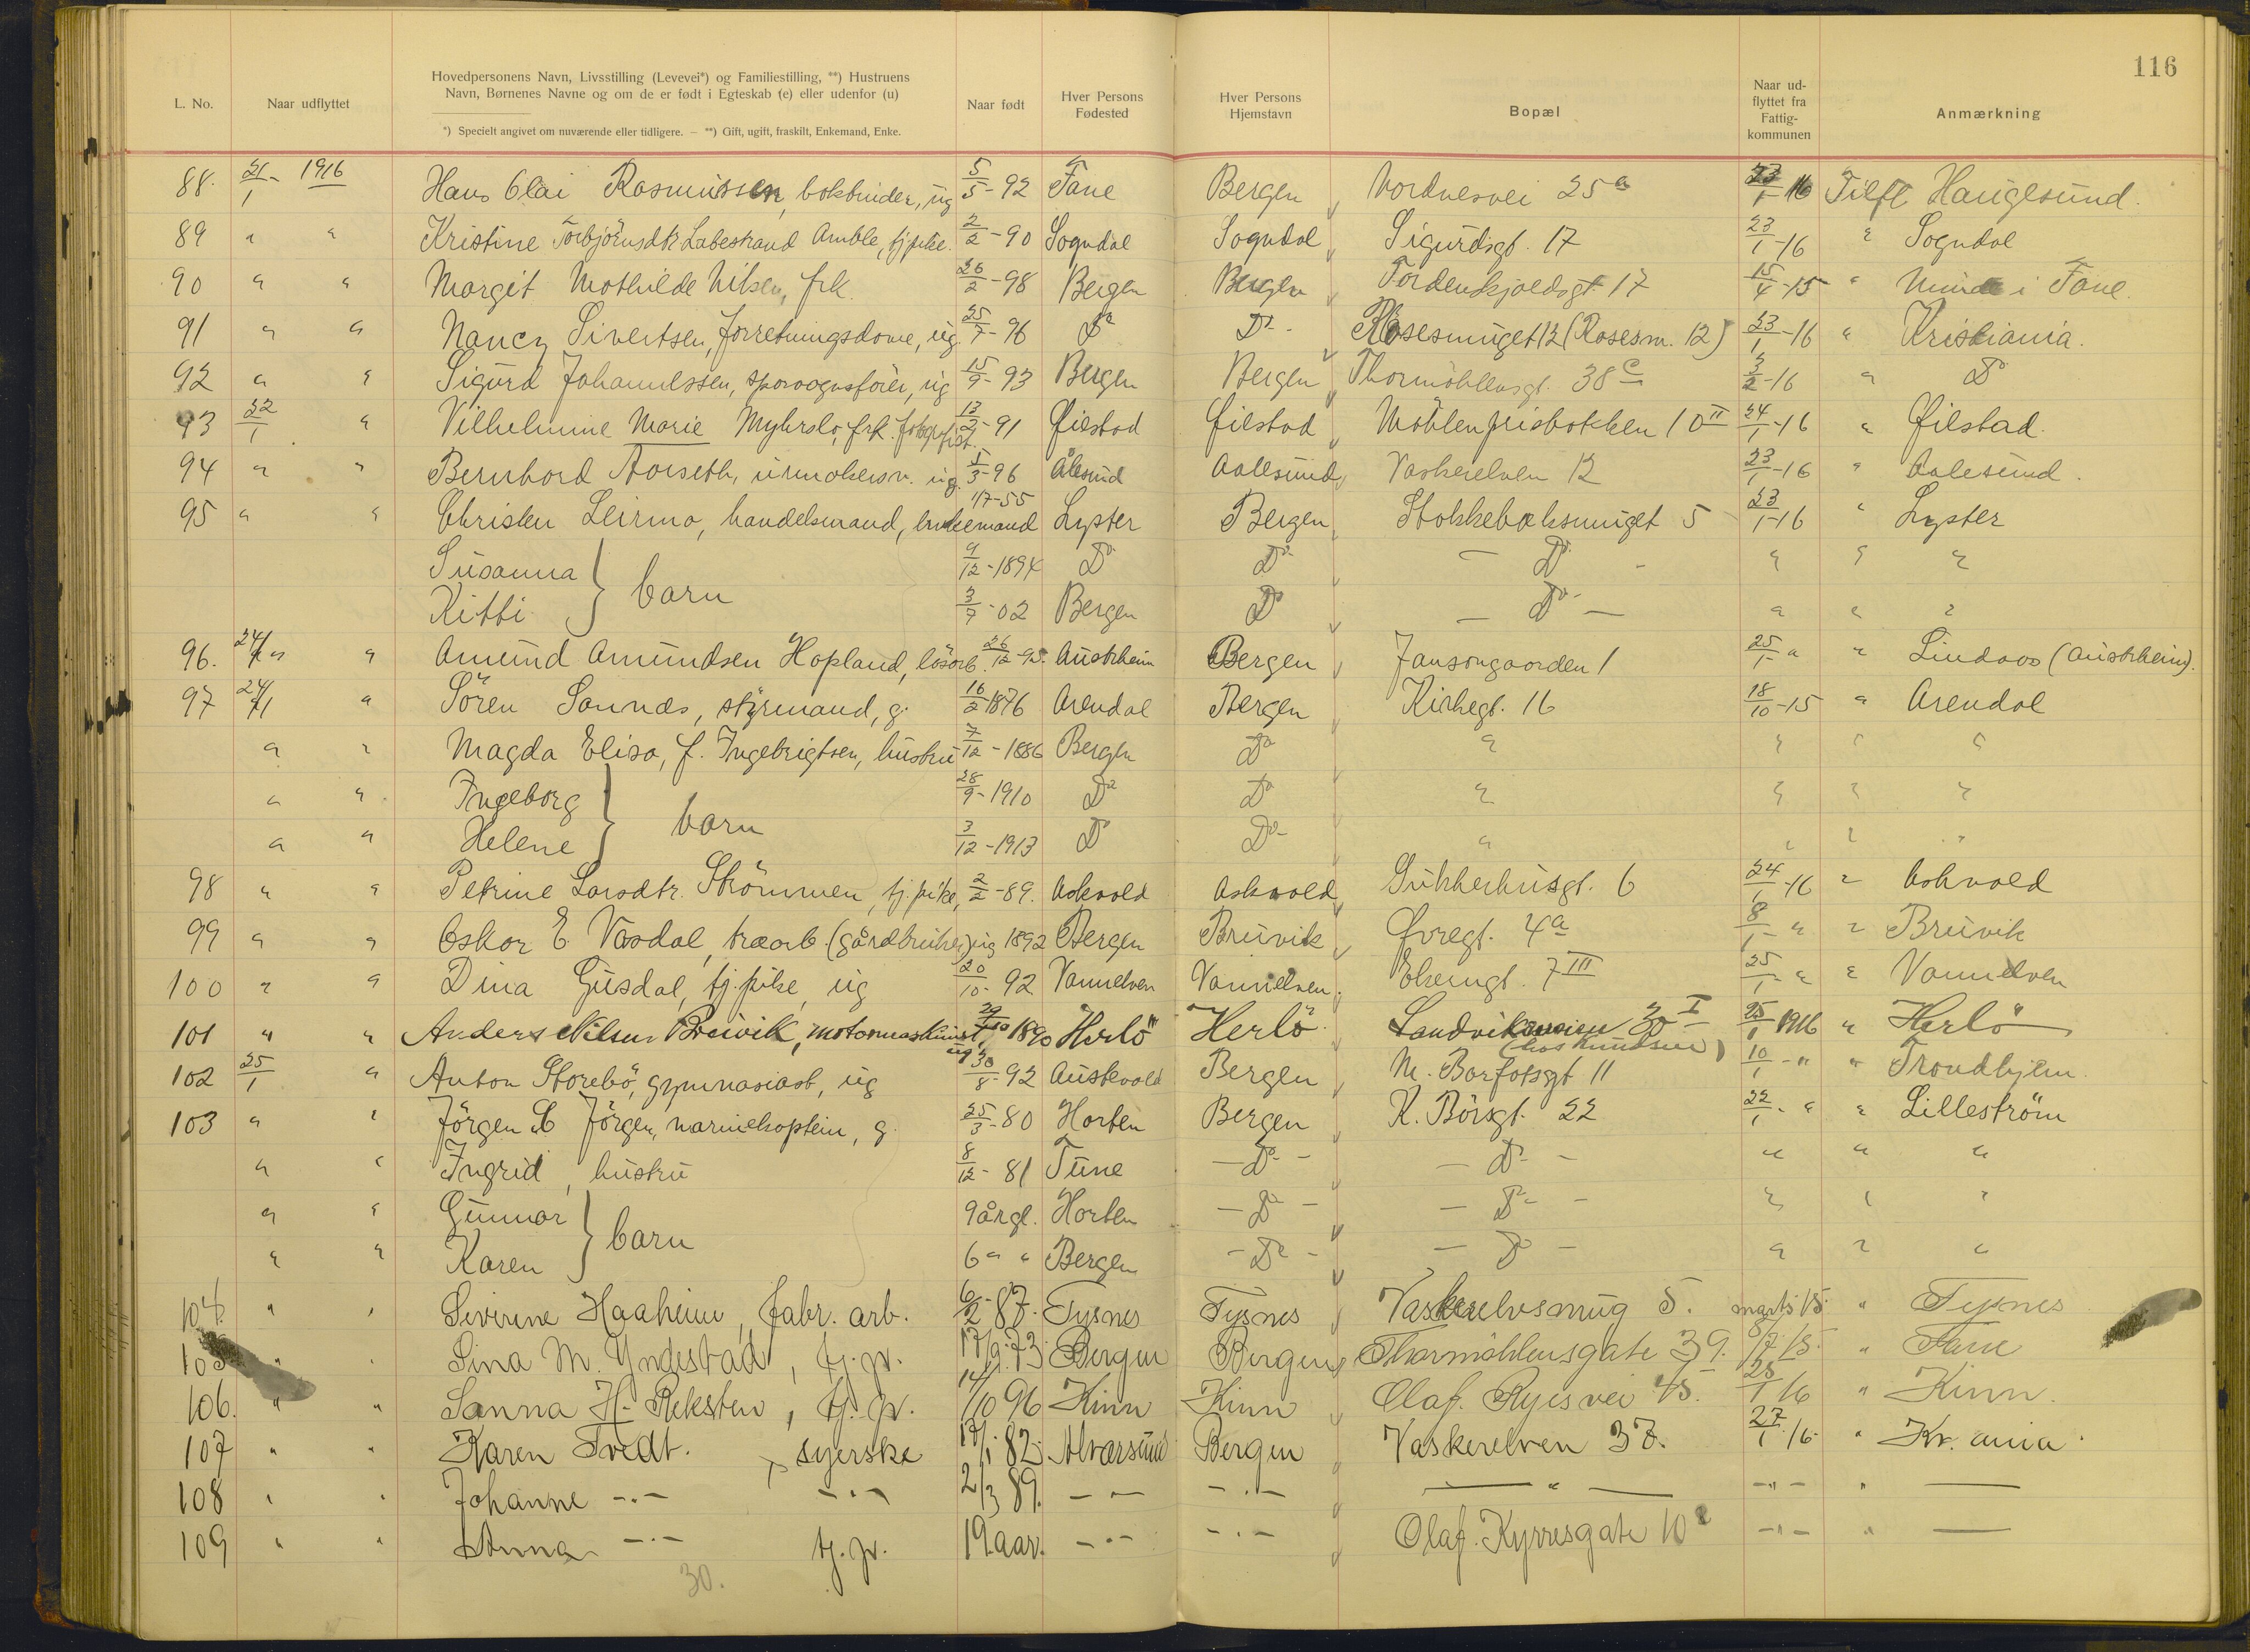 116
L. No. Naar udflyttet Hovedpersonens Navn, Livsstilling (Levevei*) og Familiestilling, **) Hustruens Navn, Børnenes Navne og om de er født i Egteskab (e) eller udenfor (u) Naar født Hver Persons Fødested Hver Persons Hjemstavn Bopæl Naar ud-flyttet fra Fattig-kommunen Anmærkning
*) Specielt angivet om nuværende eller tidligere. — **) Gift, ugift, fraskilt, Enkemand, Enke.
88. 21/1 - 1916 Hans Olai Rasmussen, bokbinder, ug 5/5-92 Fane Bergen Nordnesvei 25a 23/1-16 Tilfl Haugesund.
89 " " Kristine Torbjörnsdtr Labestrand Amble, tj.pike. 2/2-90 Sogndal Sogndal Sigurdsgt. 17 23/1-16 " Sogndal
90 " " Margit Mathilde Nilsen, frk. 26/2-98 Bergen Bergen Tordenskjoldsgt 17 15/4-15 " Minde i Fane.
91 " " Nancy Sivertsen, forretningsdame, ug. 25/7-96 Do Do- Rosesmuget 12 (Rosesm. 12) 23/1-16 " Kristiania.
92 " " Sigurd Johannessen, sporvognsförer, ug 15/9-93 Bergen Bergen Thormöhlensgt. 38c 3/2-16 " Do
93 22/1 " Vilhelmine Marie Myhrslo, frk. fotografist. 13/3-91 Øiestad Øiestad Möhlenprisbakken 10 II 24/1-16 " Øiestad.
94 " " Bernhard Aarseth, urmakersv. ug. 1/3-96 Ålesund Aalesund Vaskerelven 12 23/1-16 " Aalesund.
95 " " Christen Leirmo, handelsmand, enkemand 1/7-55 Lyster Bergen Stokkebaksmuget 5 23/1-16 " Lyster
Susanna } barn 9/12-1894 Do Do - Do - " " "
Kitti 3/7-02 Bergen Do - Do - " " "
96. 24/1 " " Amund Amundsen Hopland, lösarb. 26/12-95. Austrheim Bergen Jansongaarden 1 25/1- " " Lindaas (Austrheim).
97 24/1 " Sören Sannæs, styrmand, g. 16/2-1876 Arendal Bergen Kirkegt. 16 18/10-15 " Arendal
" " Magda Elisa, f. Ingebrigtsen, hustru 7/12-1886 Bergen Do " " " "
" " Ingeborg } barn 28/9-1910 Do Do " " " "
" " Helene 3/12-1913 Do Do- " " " "
98 " " Petrine Larsdtr. Strömmen, tj.pike, 2/2-89. Askvold Askvold Sukkerhusgt. 6 24/1-16 " Askvold
99 " " Oskar E. Vasdal, træarb. (gårdbruker) ug 1892 Bergen Bruvik Øvregt. 4a 8/1- " " Bruvik
100 " " Dina Gusdal, tj.pike, ug 20/10-92 Vannelven Vannelven. Ekerngt. 7 III 25/1- " " Vannelven
101 " " Anders Nilsen Breivik, motormaskinist, ug 29/10 1890 Herlö Herlö Sandviksveien 30 I (hos Knudsen) 25/1 1916 " Herlö
102 25/1 " Anton Storebö, gymnasiast, ug 30/8-92 Austevold Bergen N. Barfotsgt 11 10/1- " " Trondhjem.
103 " " Jörgen C Jörgen, marinekaptein, g. 25/3-80 Horten Bergen K. Börsgt. 22 22/1- " " Lilleström
" " Ingrid, hustru 8/12-81 Tune - Do - - Do - " " "
" " Gunnar } barn 9 årgl. Horten - Do - - Do - " " "
" " Karen 6 " " Bergen - Do - - Do - " " "
104. " " Severine Haaheim, fabr. arb. 6/2-87. Tysnes Tysnes Vaskerelvsmug 5. marts 15. " Tysnes
105 " " Sina M. Yndestad, tj.p. 17/9.73 Bergen Bergen Thormöhlensgate 39. 8/7.15. " Fane
106. " " Sanna H. Reksten, tj.p. 14/10 96 Kinn Kinn Olaf. Ryesvei 45. 28/1 16 " Kinn.
107 " " Karen Tvedt. , syerske 17/1 82. Alversund Bergen Vaskerelven 37. 27/1.16. " Kr.ania.
108 " " Johanne -"- -"- 2/3 89. -"- -"- — " — -"- " —
109 " " Anna -"- tj.p. 19 aar. -"- -"- Olaf. Kyrresgate 10 -"- " —
30.